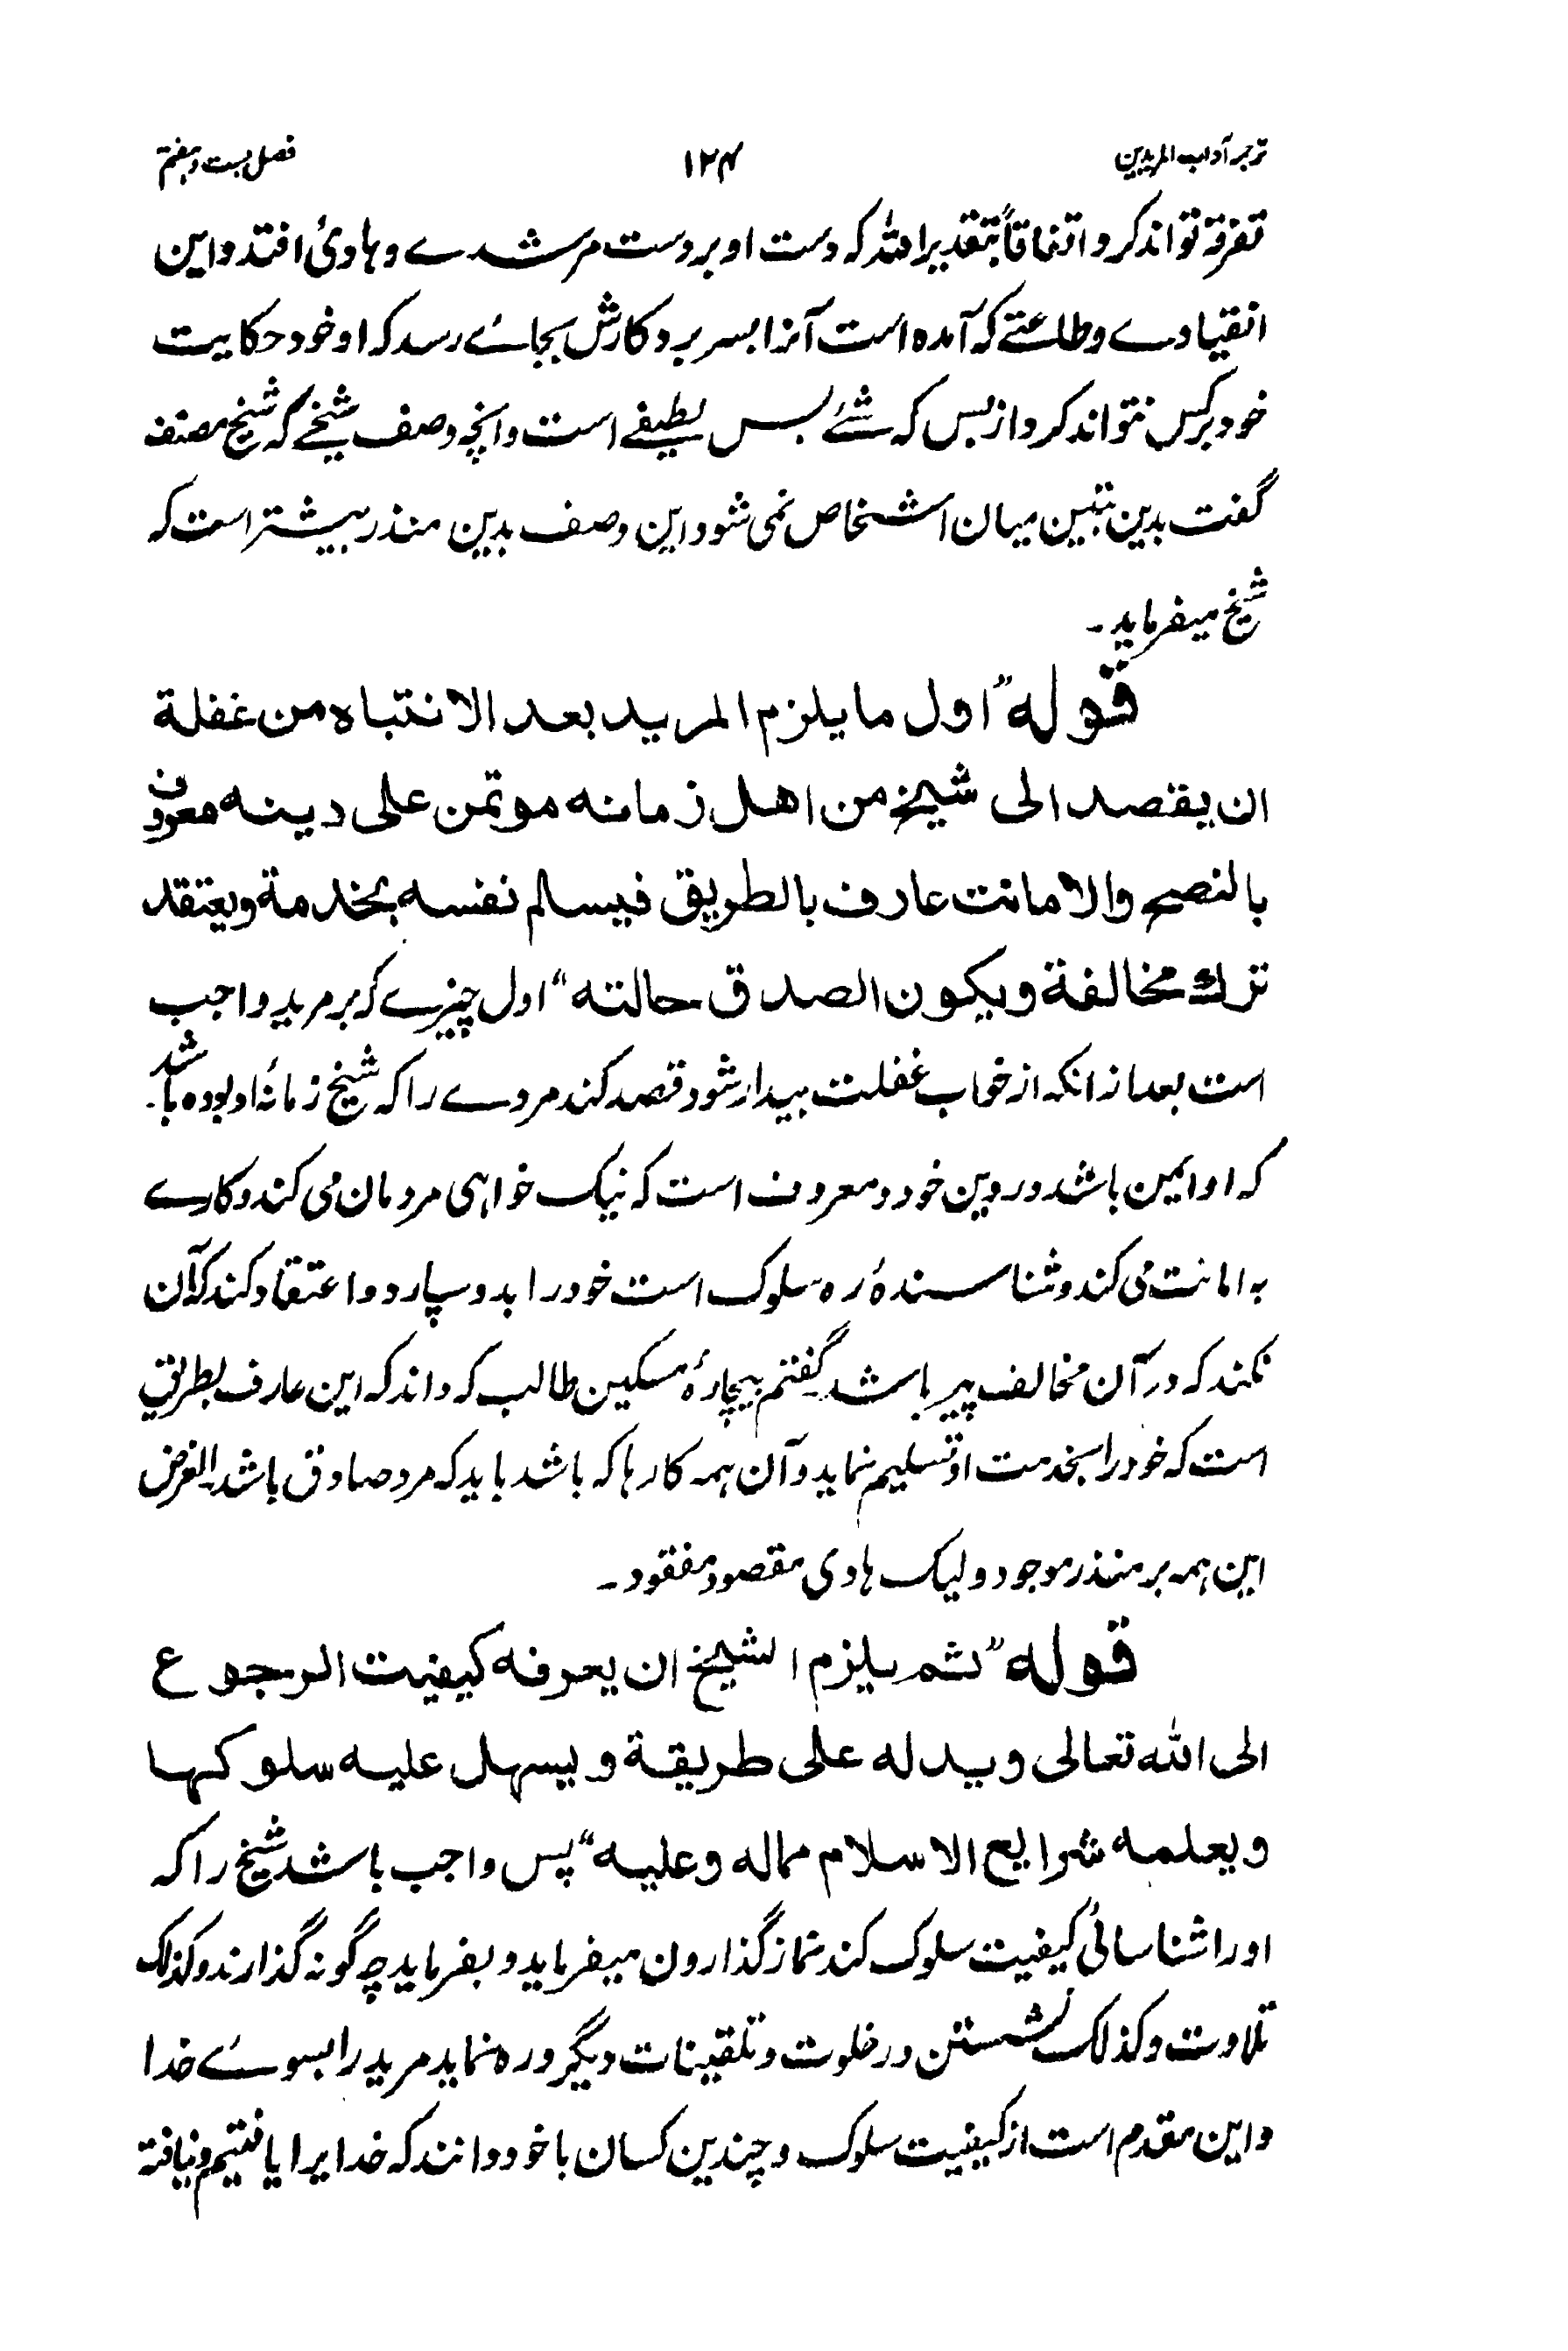 ترجمہ آداب المریدین ۱۲۴ فصل بست و ہفتم
تفرقہ تواند کرد و اتفاقاً بتقدیر اللہ کہ دست او بر دست مرشدے و ہادیٔ افتد و این
انقیادے و طاعتے کہ آمدہ است آنرا بسر برد کارش بجائے رسد کہ او خود حکایت
خود بر کس نتواند کرد از بس کہ شئے بس لطیفے است و انچہ وصف شیخے کہ شیخ مصنف
گفت بدین تبین میان اشخاص نمی شود این وصف بدین منذر بیشتر است کہ
شیخ میفرماید۔
قولہ "اول ما یلزم المرید بعد الانتباہ من غفلة
ان یقصد الی شیخ من اهل زمانه موتمن علی دینه معروف
بالنصح والامانت عارف بالطریق فیسالم نفسه بخدمة ویعتقد
ترك مخالفة ویکون الصدق حالته" اول چیزے کہ بر مرید واجب
است بعد از انکہ از خواب غفلت بیدار شود قصد کند مردے را کہ شیخ زمانۂ او بودہ باشد۔
کہ او ایمن باشد در دین خود و معروف است کہ نیک خواہی مردمان می کند و کارے
بہ امانت می کند و شناسندۂ رہ سلوک است خود را بدو سپارد و اعتقاد کند کہ آن
نکند کہ در آن مخالف پیر باشد۔ گفتم بیچارۂ مسکین طالب کہ داند کہ این عارف بطریق
است کہ خود را بخدمت او تسلیم نماید و آن ہمہ کارہا کہ باشد باید کہ مرد صادق باشد الغرض
این ہمہ بر منذر موجود و لیک ہادی مقصود مفقود۔
قولہ "ثم یلزم الشیخ ان یعرفه کیفیت الرجوع
الی الله تعالی ویدله علی طریقة ویسهل علیه سلوکها
ویعلمه شرایع الاسلام مماله وعلیه" پس واجب باشد شیخ را کہ
او را شناسائی کیفیت سلوک کند نماز گذارون میفرماید و بفرماید چہ گونہ گذارند و کذلک
تلاوت و کذلک نشستن در خلوت و تلقینات دیگر و رہ نماید مرید را بسوئے خدا
و این مقدم است از کیفیت سلوک و چندین کسان با خود دانند کہ خدایرا یافتیم و نیافتہ